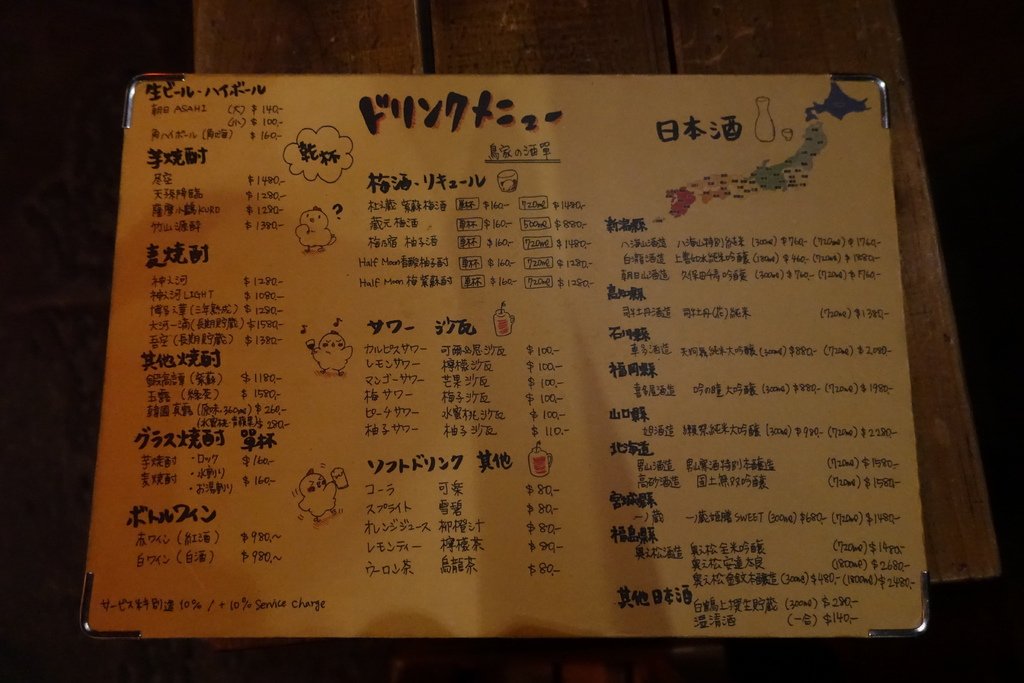 生ビール・ハイボール
朝日 ASAHI (大) $140.-
(小) $100.-
角ハイボール (角嗨) $160.-
芋焼酎
尽空 $1480.-
天孫降臨 $1280.-
薩摩小鶴KURO $1280.-
竹山源酔 $1380.-
麦焼酎
神の河 $1280.-
神の河 LIGHT $1080.-
博多の華 (三年熟成) $1280.-
大河の一滴 (長期貯蔵) $1580.-
吾空 (長期貯蔵) $1380.-
其他焼酎
鍛高譚 (紫蘇) $1180.-
玉露 (綠茶) $1580.-
韓國真露 (原味・360ml) $260.-
(水蜜桃・青蘋果) $280.-
グラス焼酎 單杯
芋焼酎 ・ロック $160.-
麦焼酎 ・水割り $160.-
・お湯割り
ボトルワイン
赤ワイン (紅酒) $980.~
白ワイン (白酒) $980.~
サービス料別途 10% / +10% Service charge
乾杯
?
ドリンクメニュー
鳥家の酒單
梅酒・リキュール
杜の蔵 紫蘇梅酒 單杯 $160.- 720ml $1480.-
蔵元梅酒 單杯 $160.- 500ml $880.-
梅乃宿 柚子酒 單杯 $160.- 720ml $1480.-
Half Moon 香醇柚子酎 單杯 $160.- 720ml $1280.-
Half Moon 梅紫蘇酎 單杯 $160.- 720ml $1280.-
サワー 沙瓦
カルピスサワー 可爾必思沙瓦 $100.-
レモンサワー 檸檬沙瓦 $100.-
マンゴーサワー 芒果沙瓦 $100.-
梅サワー 梅子沙瓦 $100.-
ピーチサワー 水蜜桃沙瓦 $100.-
柚子サワー 柚子沙瓦 $110.-
ソフトドリンク 其他
コーラ 可樂 $80.-
スプライト 雪碧 $80.-
オレンジジュース 柳橙汁 $80.-
レモンティー 檸檬茶 $80.-
ウーロン茶 烏龍茶 $80.-
日本酒
新潟縣
八海山酒造 八海山特別純米 (300ml) $760.- (720ml) $1760.-
白瀧酒造 上善如水純米吟醸 (180ml) $460.- (720ml) $1880.-
朝日山酒造 久保田千寿吟醸 (300ml) $760.- (720ml) $1760.-
高知縣
司牡丹酒造 司牡丹(花)純米 (720ml) $1380.-
石川縣
車多酒造 天狗舞純米大吟醸 (300ml) $880.- (720ml) $2080.-
福岡縣
喜多屋酒造 吟の瞳大吟醸 (300ml) $880.- (720ml) $1980.-
山口縣
旭酒造 獺祭純米大吟醸 (300ml) $980.- (720ml) $2280.-
北海道
男山酒造 男山寒酒特別本醸造 (720ml) $1580.-
高砂酒造 国士無双吟醸 (720ml) $1580.-
宮城縣
一ノ蔵 一ノ蔵姫膳 SWEET (300ml) $680.- (720ml) $1480.-
福島縣
奥の松酒造 奥の松全米吟醸 (720ml) $1480.-
奥の松安達太良 (1800ml) $2680.-
奥の松金紋本醸造 (300ml) $480.- (1800ml) $2480.-
其他日本酒
白鶴上撰生貯蔵 (300ml) $280.-
溫清酒 (一合) $140.-